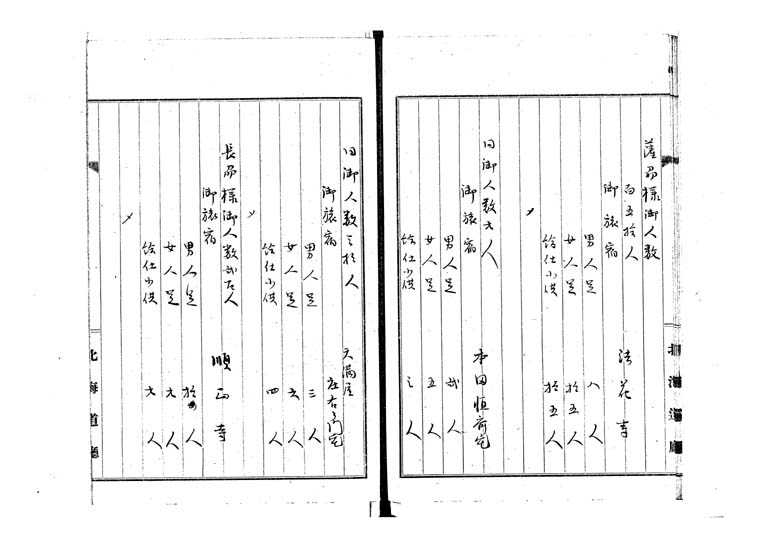 薩州様御人数
百五拾人
御旅宿 法花寺
男人足 八人
女人足 拾五人
給仕小供 拾五人
〆
同御人数六人
御旅宿 本田恒前宅
男人足 弐人
女人足 五人
給仕小供 三人
北海道廳
同御人数三拾人
御旅宿 天満屋
左右衛門宅
男人足 三人
女人足 六人
給仕小供 四人
〆
長州様御人数
御旅宿 順正寺
男人足 拾四人
女人足 六人
給仕小供 六人
〆
北海道廳